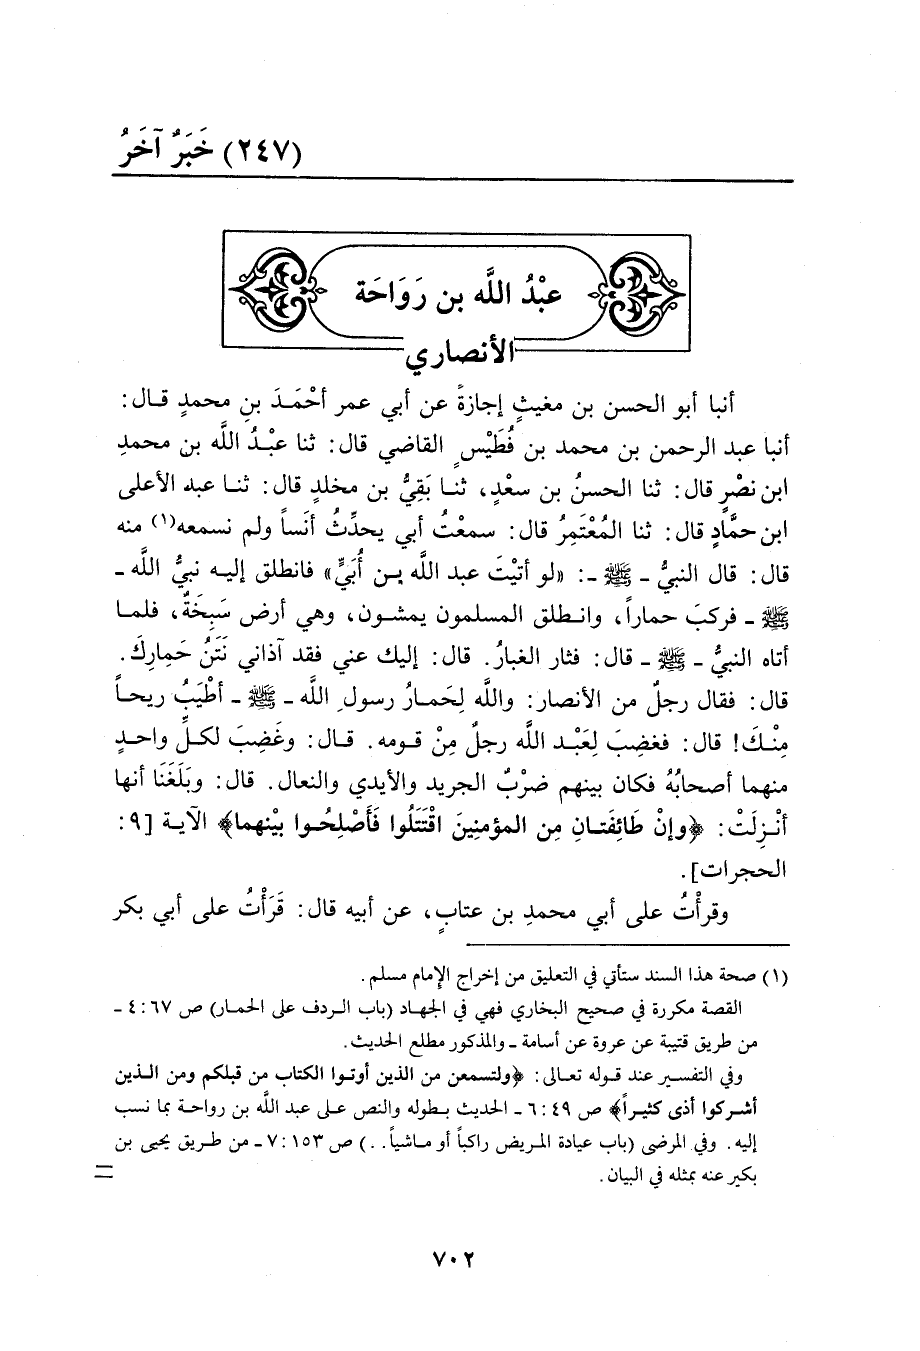 (٢٤٧) خَبَرٌ آخَرُ
عبْدُ اللَّه بن رَوَاحَة
الأنصاري
أنبا أبو الحسن بن مغيثٍ إجازةً عن أبي عمر أحْمَـدَ بنِ محمدٍ قـال:
أنبا عبد الرحمن بن محمد بن فُطَيْسٍ القاضي قال: ثنا عبْـدُ اللَّه بن محمدِ
ابن نصْرٍ قال: ثنا الحسنُ بن سعْدٍ، ثنـا بَقِيُّ بن مخلدٍ قال: ثنـا عبد الأعلى
ابن حمَّادٍ قال: ثنا المُعْتَمِرُ قال: سمعْتُ أبي يحدِّثُ أنَساً ولم نسمعه(١) منه
قال: قال النبيُّ ـ ﷺ ـ: «لو أتيْتَ عبد الله بـن أُبَيٍّ» فانطلق إليـه نبيُّ الله ـ
ﷺ ـ فركبَ حماراً، وانـطلق المسلمون يمشـون، وهي أرض سَبِخَةٌ، فلمـا
أتاه النبيُّ ـ ﷺ ـ قال: فثار الغبارُ. قال: إليك عني فقد آذاني نَتَنُ حَمارِكَ.
قال: فقال رجلٌ من الأنصار: واللَّه لِحَمـارُ رسولِ اللَّه ـ ﷺ ـ أطْيَبُ ريحـاً
مِنْـكَ! قال: فغضِبَ لِعَبْـد اللَّه رجلٌ مِنْ قـومه. قـال: وغَضِبَ لكـلِّ واحـدٍ
منهما أصحابُهُ فكان بينهم ضرْبٌ الجريد والأيدي والنعال. قال: وبَلَغَنا أنها
أنْـزِلَتْ: ﴿وإنْ طَائِفَتَـانِ مِن المؤمنِينَ اقْتَتَلُوا فَأَصْلِحُـوا بيْنهما﴾ الآيـة [٩:
الحجرات].
وقرأْتُ على أبي محمدِ بن عتابٍ، عن أبيه قال: قَرَأْتُ على أبي بكر
(١) صحة هذا السند ستأتي في التعليق من إخراج الإمام مسلم.
القصة مكررة في صحيح البخاري فهي في الجهاد (باب الـردف على الحمـار) ص ٤:٦٧ ـ
من طريق قتيبة عن عروة عن أسامة ـ والمذكور مطلع الحديث.
وفي التفسير عند قـوله تعـالى: ﴿ولتسمعن من الذين أوتـوا الكتاب من قبلكم ومن الـذين
أشـركوا أذى كثيـراً﴾ ص ٦:٤٩ ـ الحديث بـطوله والنص عـلى عبد اللَّه بن رواحـة بما نسب
إليه. وفي المرضى (باب عيادة المـريض راكباً أو مـاشياً..) ص ٧:١٥٣ ـ من طـريق يحيى بن
بكير عنه بمثله في البيان.
=
٧٠٢